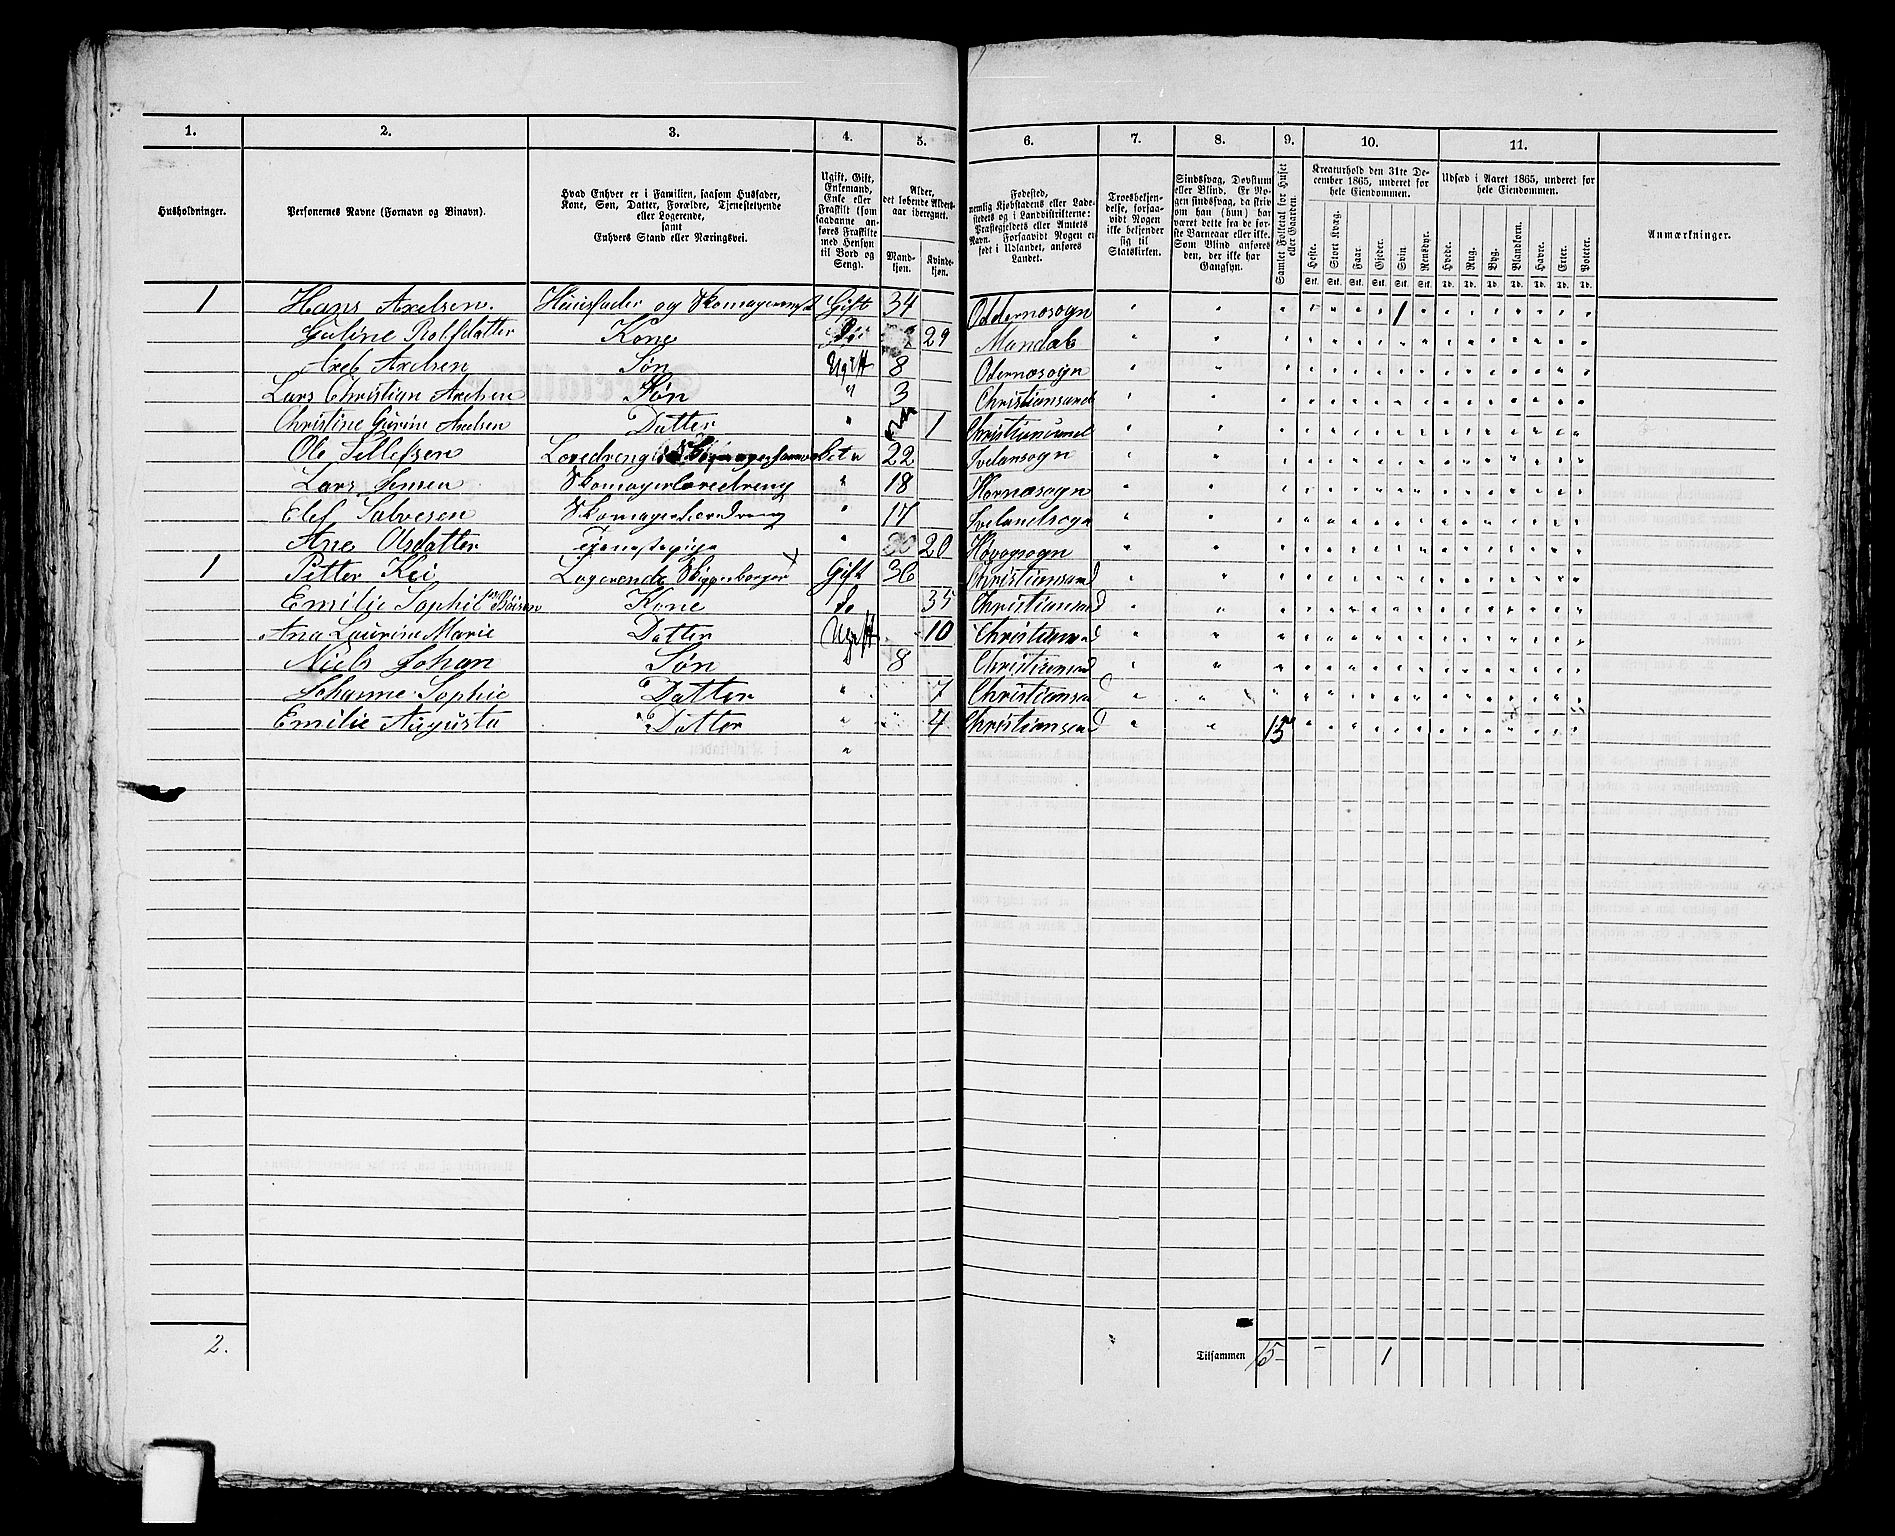 1. 2. 3. 4. 5. 6. 7. 8. 9. 10. 11.
Husholdninger.
Personernes Navne (Fornavn og Binavn).
Hvad Enhver er i Familien, saasom Husfader,
Kone, Søn, Datter, Forældre, Tjenestetyende
eller Logerende,
samt
Enhvers Stand eller Næringsvei.
Ugift, Gift,
Enkemand,
Enke eller
Fraskilt (som
saadanne an-
føres Fraskilte
med Hensyn
til Bord og
Seng).
Alder,
det løbende Alders-
aar iberegnet.
Mand-
kjøn.
Kvinde-
kjøn.
Fødested,
nemlig Kjøbstadens eller Lade-
stedets og i Landdistrikterne:
Præstegjeldets eller Amtets
Navn. Forsaavidt Nogen er
født i Udlandet, anføres
Landet.
Troesbekjen-
delse, forsaa-
vidt Nogen
ikke bekjender
sig til
Statskirken.
Sindssvag, Døvstum
eller Blind. Er No-
gen sindssvag, da skriv
om han (hun) har
været dette fra de før-
ste Barneaar eller ikke.
Som Blind anføres
den, der ikke har
Gangsyn.
Samlet Folketal for Huset
eller Gaarden.
Kreaturhold den 31te De-
cember 1865, underet for
hele Eiendommen.
Heste. Stort Kvæg. Faar. Gjeder. Svin. Rensdyr.
Stk. Stk. Stk. Stk. Stk. Stk.
Udsæd i Aaret 1865, underet for
hele Eiendommen.
Hvede. Rug. Byg. Blandkorn. Havre. Erter. Poteter.
Td. Td. Td. Td. Td. Td. Td.
Anmærkninger.
1 Hans Axelsen Huusfader og Skomagermest Gift 34 Oddernæsogn 1
Guline Rolfsdatter Kone Do 29 Mandal
Axel Axelsen Søn Ugift 8 Odernæsogn
Lars Christian Axelsen Søn " 3 Christiansand
Christine Gurine Axelsen Datter " 1 Christiansand
Ole Tellefsen 22 Ivelansogn
Lars Jensen Skomagerlæredreng " 18 Hornæsogn
Elef Salvesen Skomagerlæredreng " 17 Ivelandsogn
Ane Olsdatter Tjenestepige " 20 Høvogsogn
1 Petter Kei Logerende Skipperborger Gift 36 Christiansand
Emilie Sophie Boisen Kone do 35 Christiansand
Ana Laurine Marie Datter Ugift 10 Christiansand
Niels Johan Søn 8 Christiansand
Johanne Sophie Datter " 7 Christiansand
Emilie Augusta Datter " 4 Christiansand 15
2. Tilsammen 15 - 1